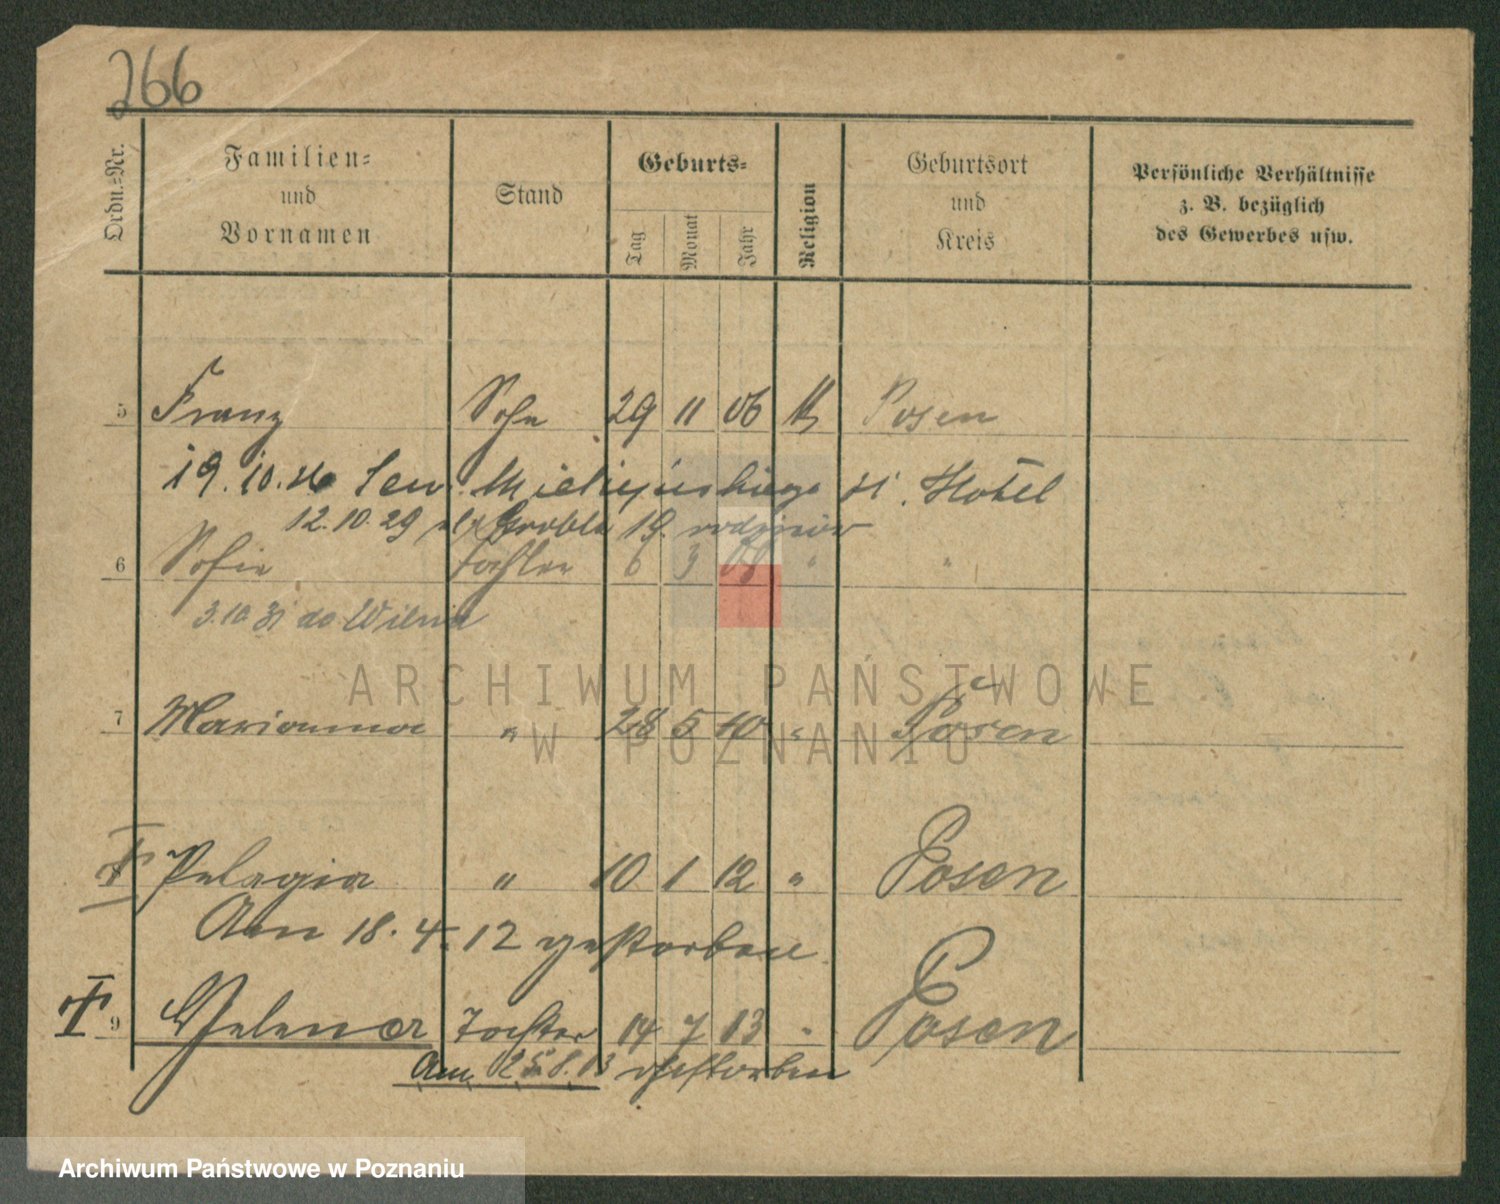 266
Ordn.-Nr.
Familien-
und
Vornamen
Stand
Geburts-
Tag
Monat
Jahr
Religion
Geburtsort
und
Kreis
Persönliche Verhältnisse
z. B. bezüglich
des Gewerbes usw.
5 Franz Sohn 29 11 06 Posen
19. 10. 26 Hotel
12. 10. 29 Grobla 19
6 Sofie Tochter 6 3 "
3.10 31 do Wilna
ARCHIWUM PAŃSTWOWE
W POZNANIU
7 Marianna " 28 5 10 " Posen
Pelagia " 10 1 12 " Posen
Am 18. 4. 12 gestorben
9 Helena Tochter 14 7 13 " Posen
Am 25.8.13 gestorben
Archiwum Państwowe w Poznaniu